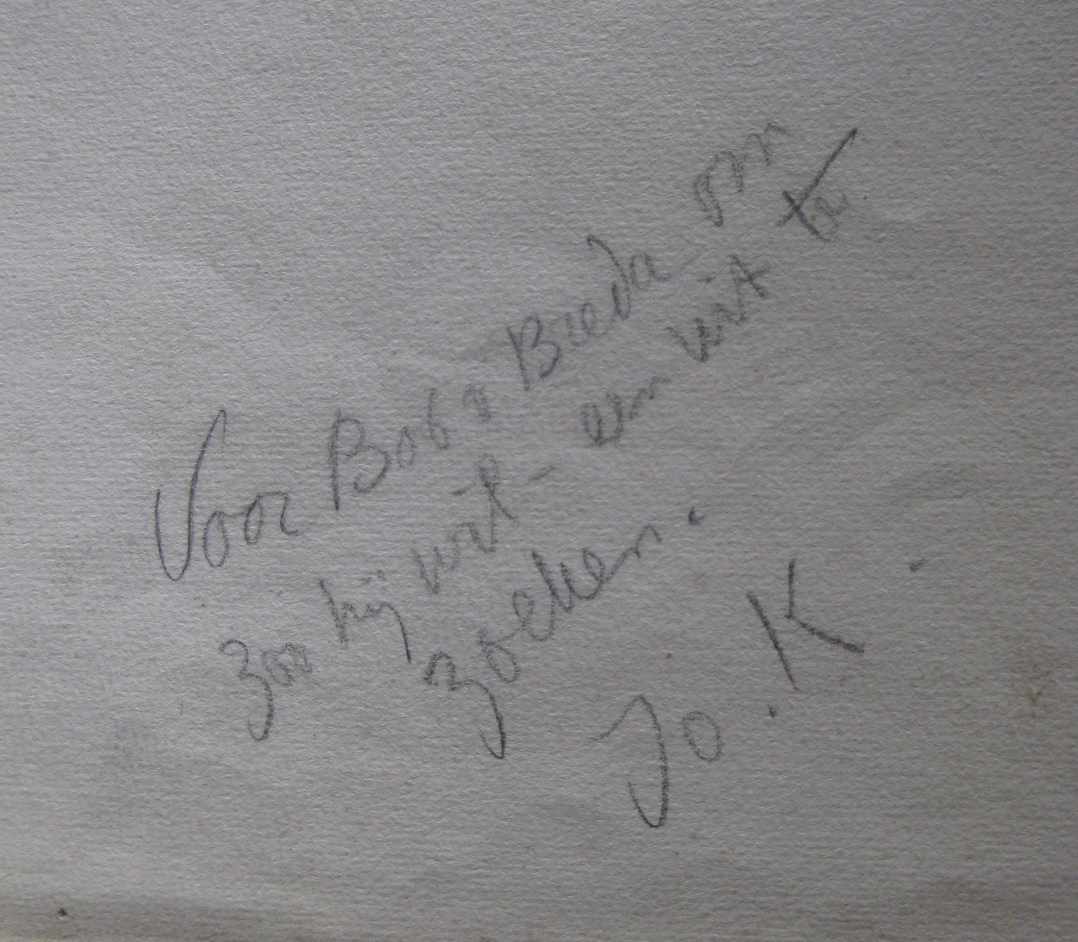 Voor Bob v Breda om
zoo hij wil – een uit te
zoeken.
Jo. K.